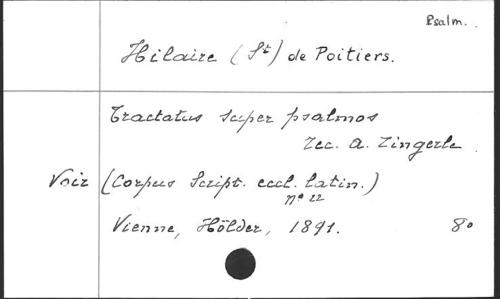 Psalm.
Hilaire (St) de Poitiers.
Tractatus super psalmos
rec. A. Zingerle
Voir (Corpus Script. eccl. latin.)
n° 22
Vienne, Hölder, 1891. 8o